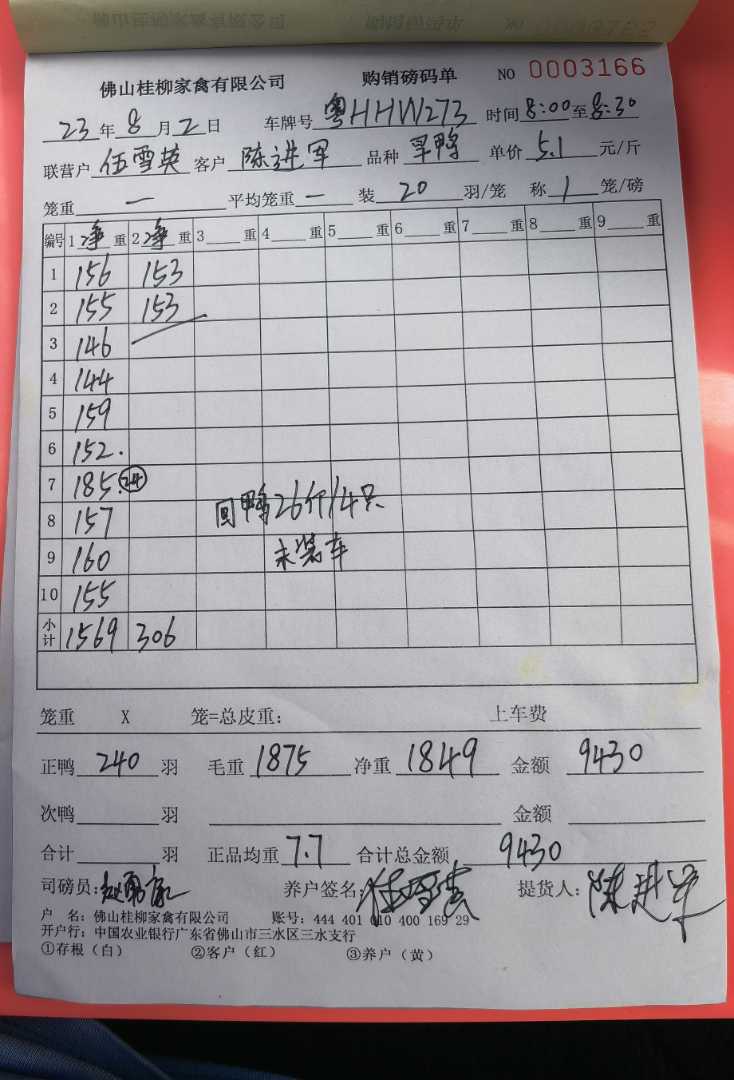 佛山桂柳家禽有限公司 购销磅码单 NO 0003166
23年8月2日 车牌号 粤HHW273 时间 8:00至8:30
联营户 伍雪英 客户 陈进军 品种 旱鸭 单价 5.1 元/斤
笼重 一 平均笼重 一 装 20 羽/笼 称 1 笼/磅
编号 1 净 重 2 净 重 3 重 4 重 5 重 6 重 7 重 8 重 9 重
1 156 153
2 155 153
3 146
4 144
5 159
6 152.
7 185. 24
8 157
9 160
10 155
回鸭26斤/4只
未装车
小计 1569 306
笼重 X 笼=总皮重: 上车费
正鸭 240 羽 毛重 1875 净重 1849 金额 9430
次鸭 羽 金额
合计 羽 正品均重 7.7 合计总金额 9430
司磅员: 养户签名: 伍雪英 提货人: 陈进军
户 名: 佛山桂柳家禽有限公司 账号: 444 401 010 400 169 29
开户行: 中国农业银行广东省佛山市三水区三水支行
①存根（白） ②客户（红） ③养户（黄）